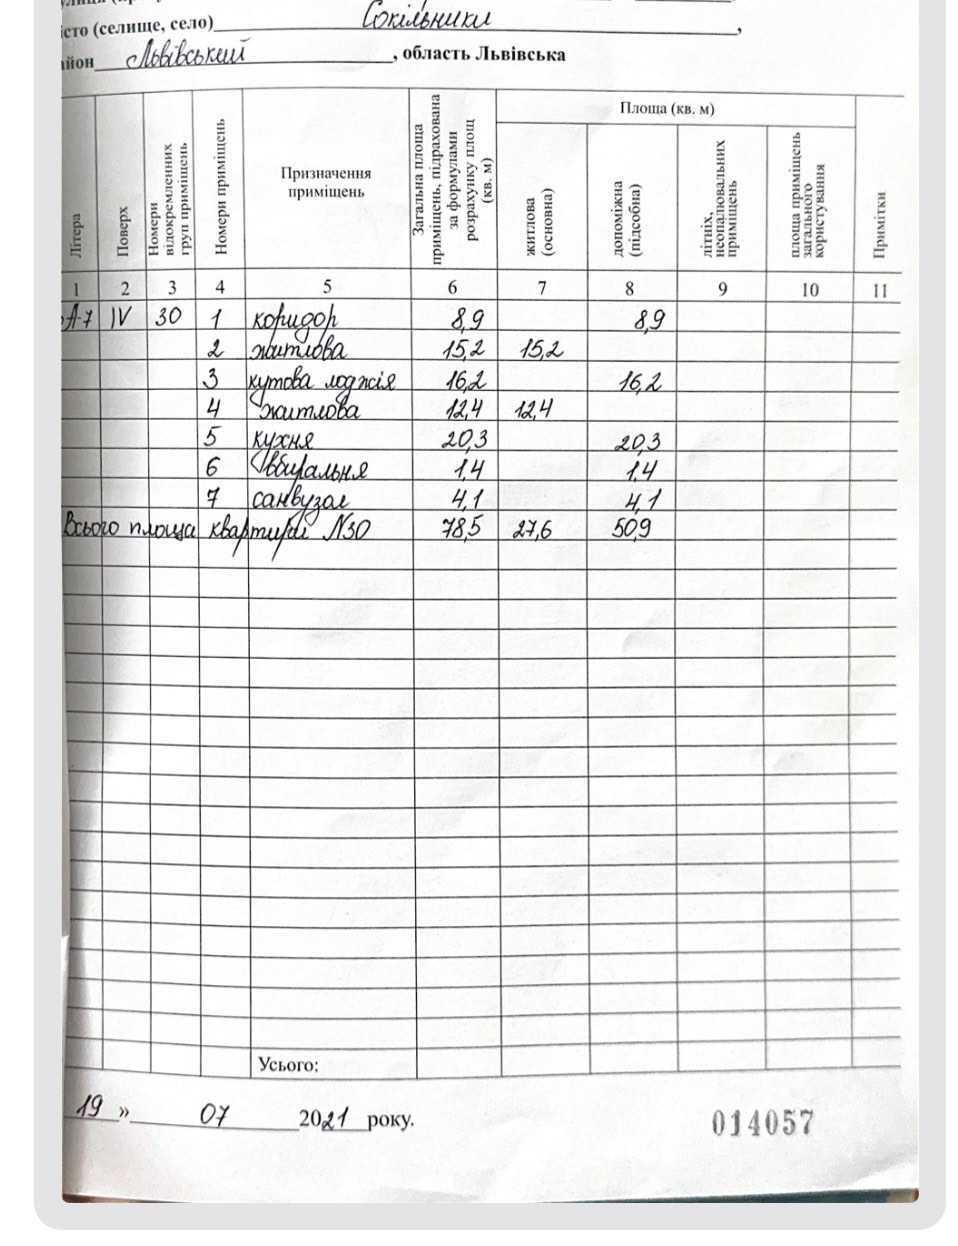 істо (селище, село) Сокільники,
айон Львівський, область Львівська
Літера
Поверх
Номери відокремленних груп приміщень
Номери приміщень
Призначення приміщень
Загальна площа приміщень, підрахована за формулами розрахунку площ (кв. м)
Площа (кв. м)
житлова (основна)
допоміжна (підсобна)
літніх, неопалювальних приміщень
площа приміщень загального користування
Примітки
1 2 3 4 5 6 7 8 9 10 11
А-7 IV 30 1 коридор 8,9 8,9
2 житлова 15,2 15,2
3 кутова лоджія 16,2 16,2
4 житлова 12,4 12,4
5 кухня 20,3 20,3
6 вбиральня 1,4 1,4
7 санвузол 4,1 4,1
Всього площа квартири N30 78,5 27,6 50,9
Усього:
19 » 07 2021 року.
014057